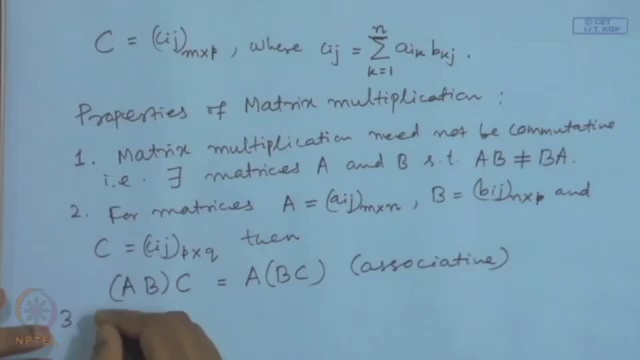 © CET
I.I.T. KGP
C = (cij)m×p, where cij = n∑k=1 aik bkj.
Properties of Matrix multiplication :
1. Matrix multiplication need not be commutative
i.e. ∃ matrices A and B s.t. AB ≠ BA.
2. For matrices A = (aij)m×n, B = (bij)n×p and
C = (cij)p×q then
(AB)C = A(BC) (associative)
3
NPTEL